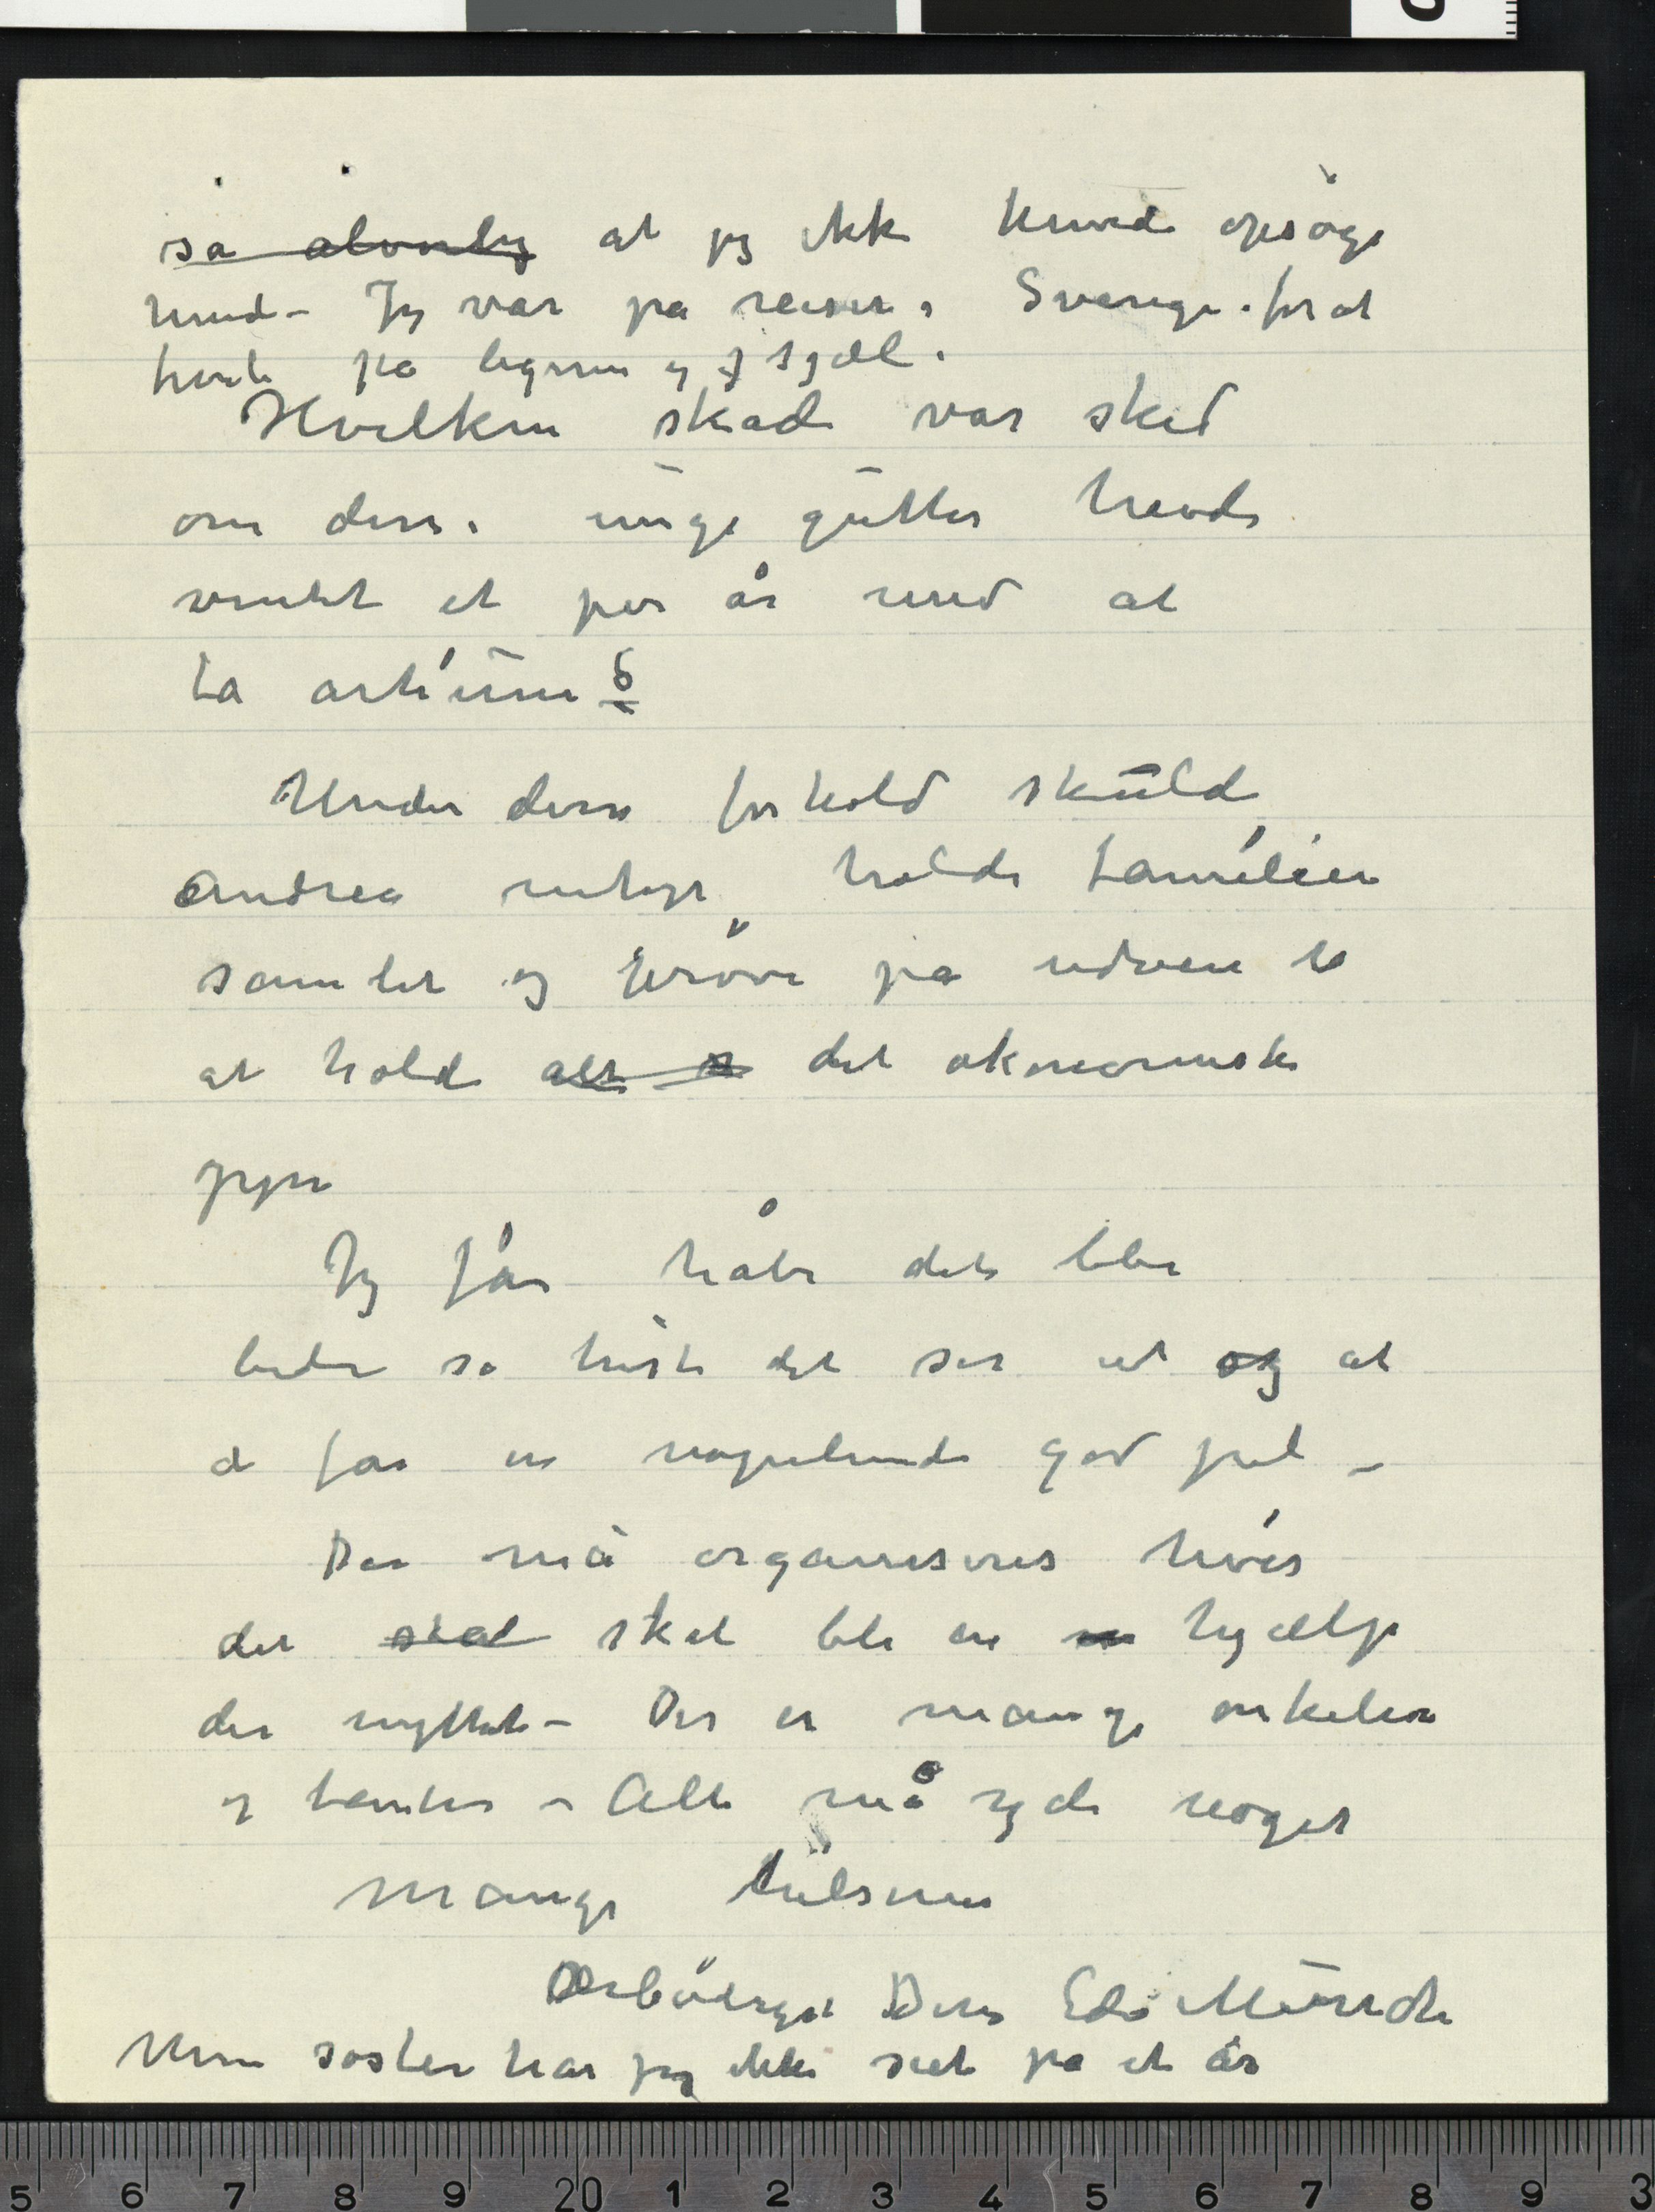 ~~så alvorlig~~ at jeg ikke kunde opsøge
hende – Jeg var på reiser i Sverige for at
hvile på legeme og sjæl.
Hvilken skade var sked
om disse unge gutter havde
ventet et par år med at
ta artium?
Under disse forhold skulde
Andrea roligt holde familien
samlet og prøve på udvei til
at holde ~~alt~~ det økonomiske
oppe
Jeg får håbe det blir
bedre så trist det ser ut ~~og~~ at
de får en nogenlunde god jul –
Der må organiseres hvis
det ~~skal~~ skal bli en ~~en~~ hjælp
der nytter – Der er mange onkeler
og tanter – Alle må yde noget
Mange hilsener
Ærbødigst Deres Edv Munch
Min søster har jeg ikke seet på et år
5 6 7 8 9 20 1 2 3 4 5 6 7 8 9 3